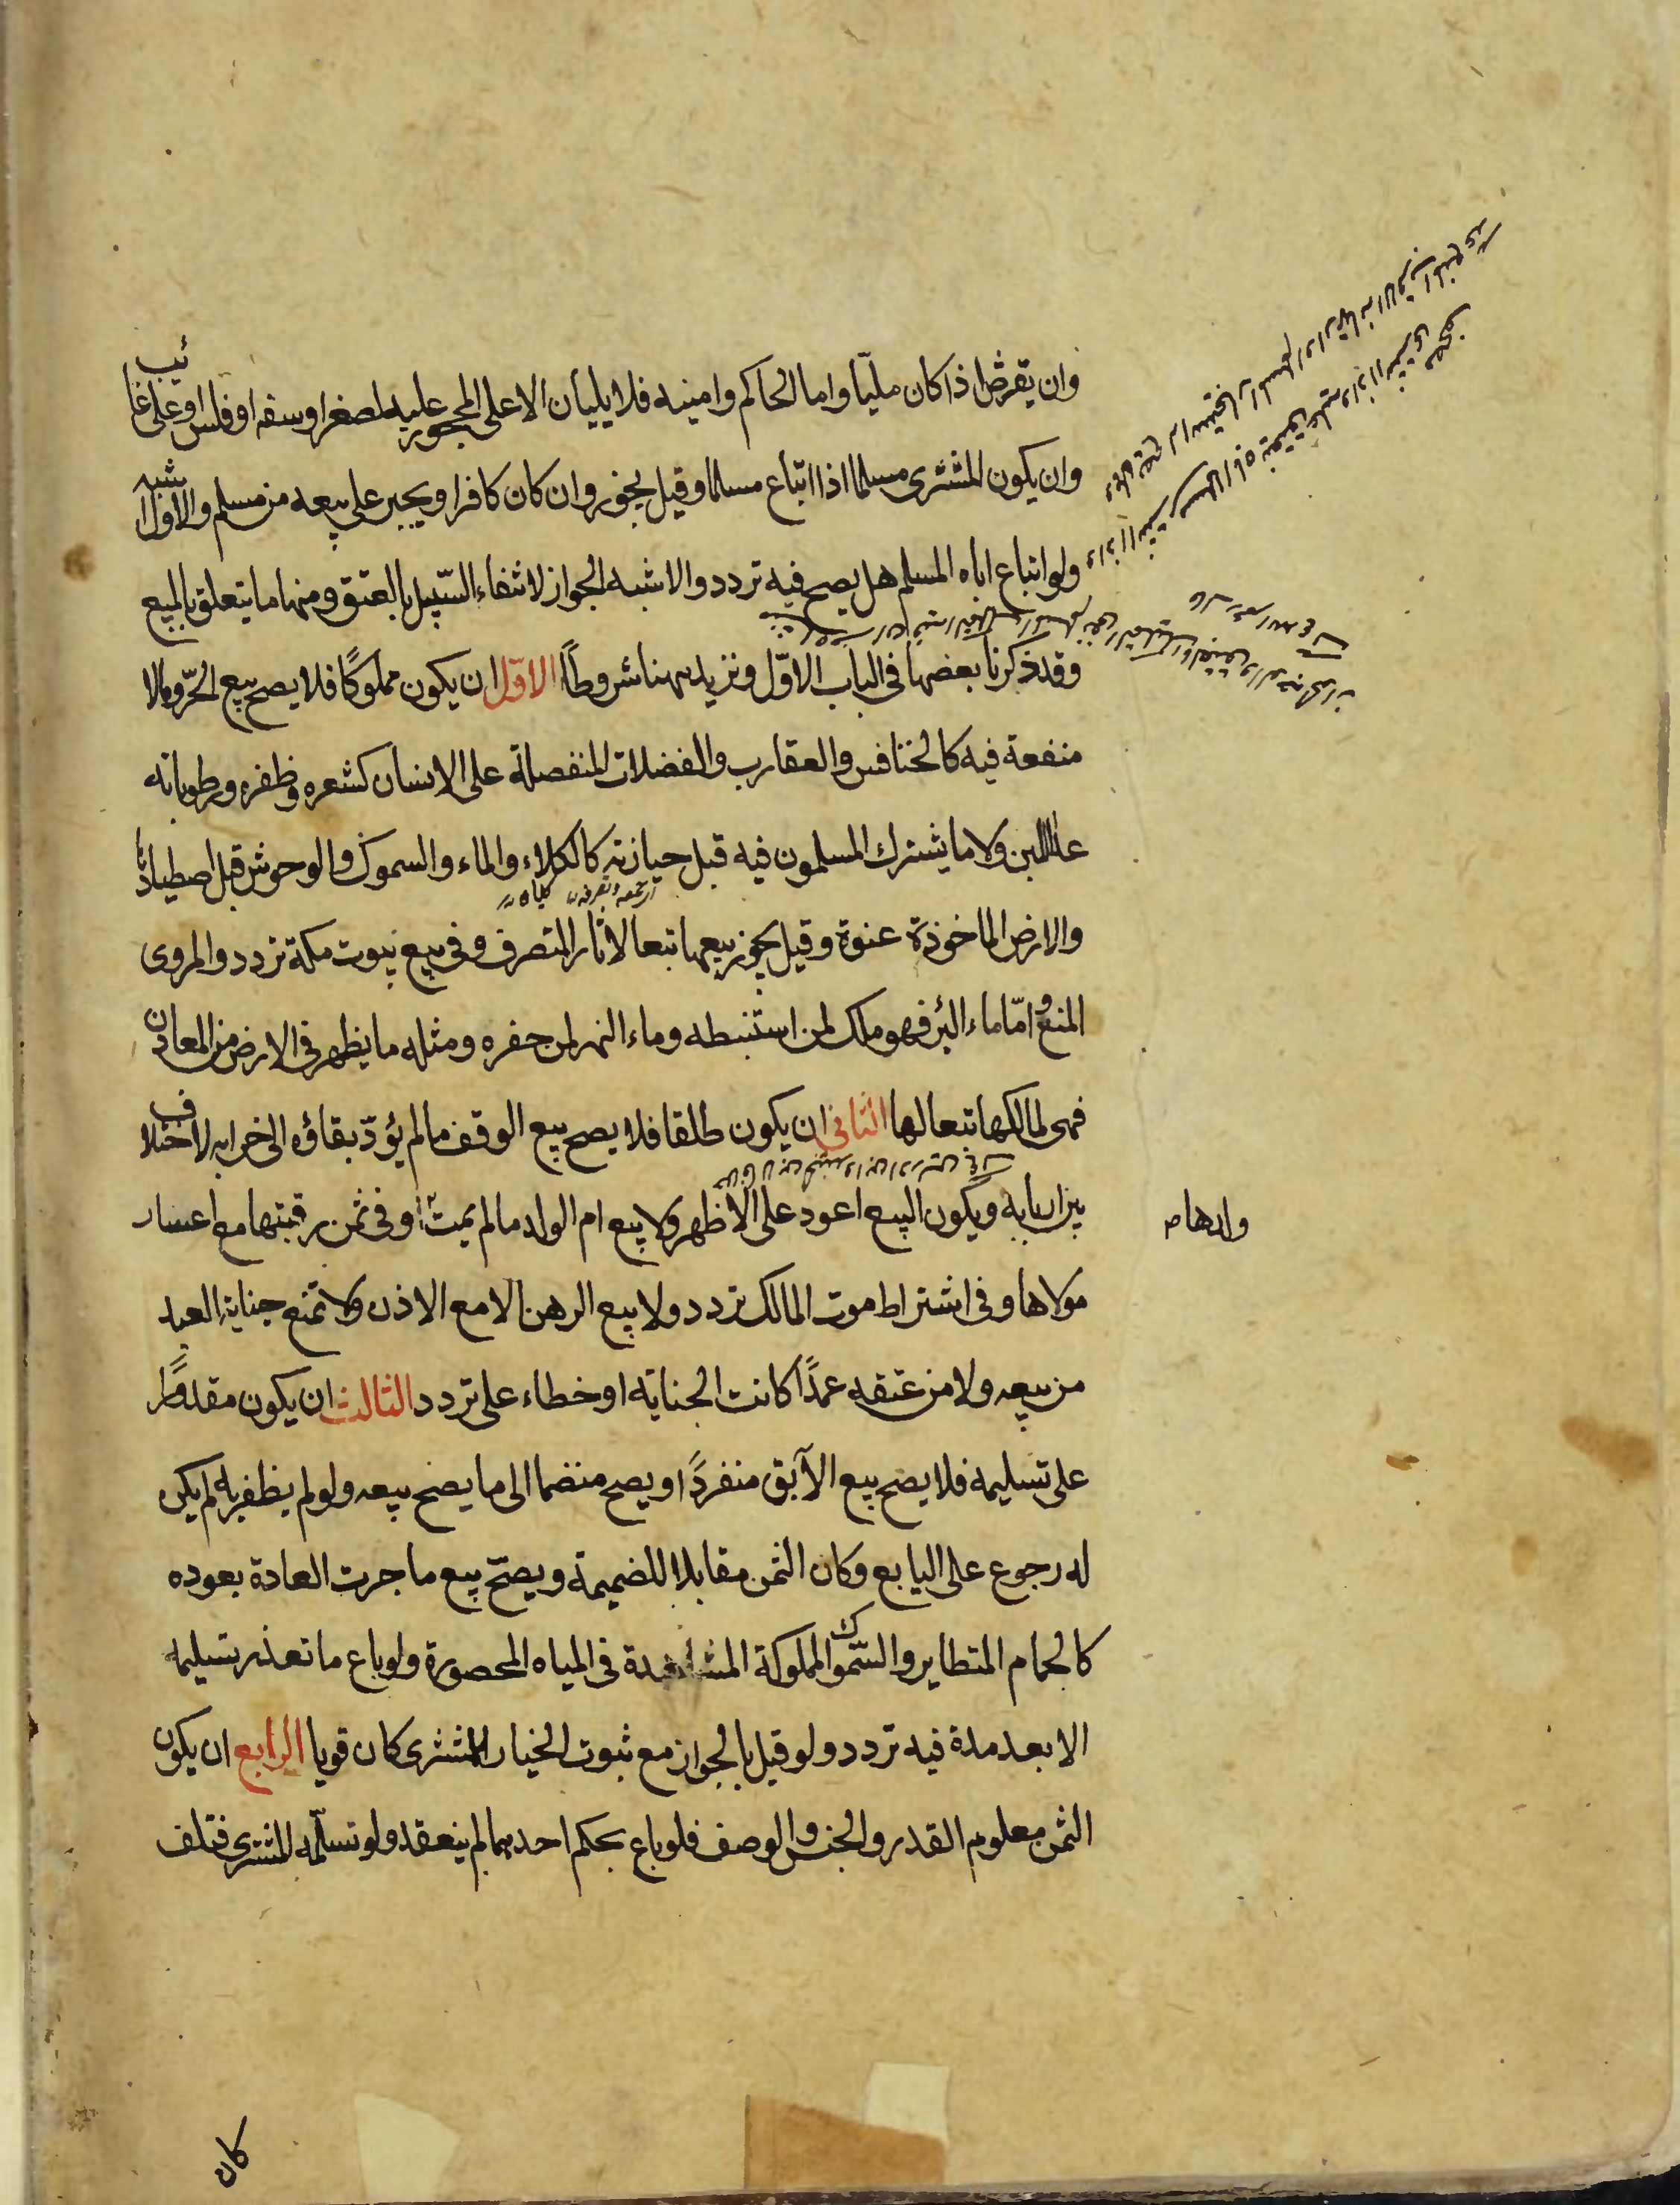 وان يقرض اذا كان مليّا واما الحاكم وامينه فلا يليان الا على المحجور عليه لصغر او سفه او فلس او على غائب
وان يكون المشترى مسلما اذا ابتاع مسلما وقيل يجوز وان كان كافرا ويجبر على بيعه من مسلم والاول اشبه
ولو ابتاع اباه المسلم هل يصح فيه تردد والاشبه الجواز لانتفاء السّبيل بالعتق ومنها ما يتعلق بالمبيع
وقد ذكرنا بعضها فى الباب الاوّل ونزيد ههنا شروطاً الاوّل ان يكون مملوكًا فلا يصح بيع الحرّ وما لا
منفعة فيه كالخنافس والعقارب والفضلات المنفصلة على الانسان كشعره وظفره ورطوباته
عدا اللبن ولا ما يشترك المسلمون فيه قبل حيازته كالكلاء والماء والسموك والوحوش قبل اصطيادها
والارض الماخوذة عنوة وقيل يجوز بيعها تبعا لاثار المتصرف وفى بيع بيوت مكة تردد والمروى
المنع وامّا ماء البئر فهو ملك لمن استنبطه وماء النهر لمن حفره ومثله ما يظهر فى الارض من المعادن
فهى لمالكها تبعا لها الثانى ان يكون طلقا فلا يصح بيع الوقف ما لم يؤدّ بقاؤه الى خرابه لاختلاف
بين اربابه ويكون البيع اعود على الاظهر ولا بيع ام الولد ما لم يمت او فى ثمن رقبتها مع اعسار
مولاها وفى اشتراط موت المالك تردد ولا بيع الرهن الا مع الاذن ولا تمنع جناية العبد
من بيعه ولا من عتقه عمدًا كانت الجناية او خطاء على تردد الثالث ان يكون مقدورًا
على تسليمه فلا يصح بيع الآبق منفردًا ويصح منضما الى ما يصح بيعه ولو لم يظفر به لم يكن
له رجوع على البايع وكان الثمن مقابلا للضميمة ويصحّ بيع ما جرت العادة بعوده
كالحمام المتطاير والسّموك المملوكة المشاهدة فى المياه المحصورة ولو باع ما تعذر تسليمه
الا بعد مدة فيه تردد ولو قيل بالجواز مع ثبوت الخيار للمشترى كان قويا الرابع ان يكون
الثمن معلوم القدر والجنس والوصف فلو باع بحكم احدهما لم ينعقد ولو تسلّمه المشترى فتلف
كان